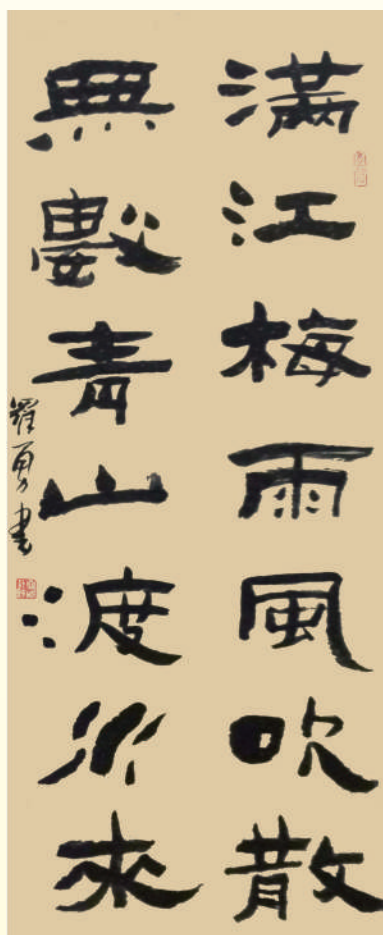 滿江梅雨風吹散
無數青山渡水來
羅勇書